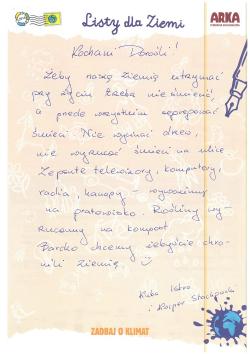 Listy dla Ziemi
ARKA
Kochani Dorośli!
Żeby naszą Ziemię utrzymać
przy życiu trzeba nie śmiecić,
a przede wszystkim segregować
śmieci. Nie wycinać drzew,
nie wyrzucać śmieci na ulice
Zepsute telewizory, komputery,
radia, kanapy – wywozimy
na
Rośliny wy-
rzucamy na kompost
Bardzo chcemy żebyście chro-
nili ziemię
Kuba
i Kacper
ZADBAJ O KLIMAT